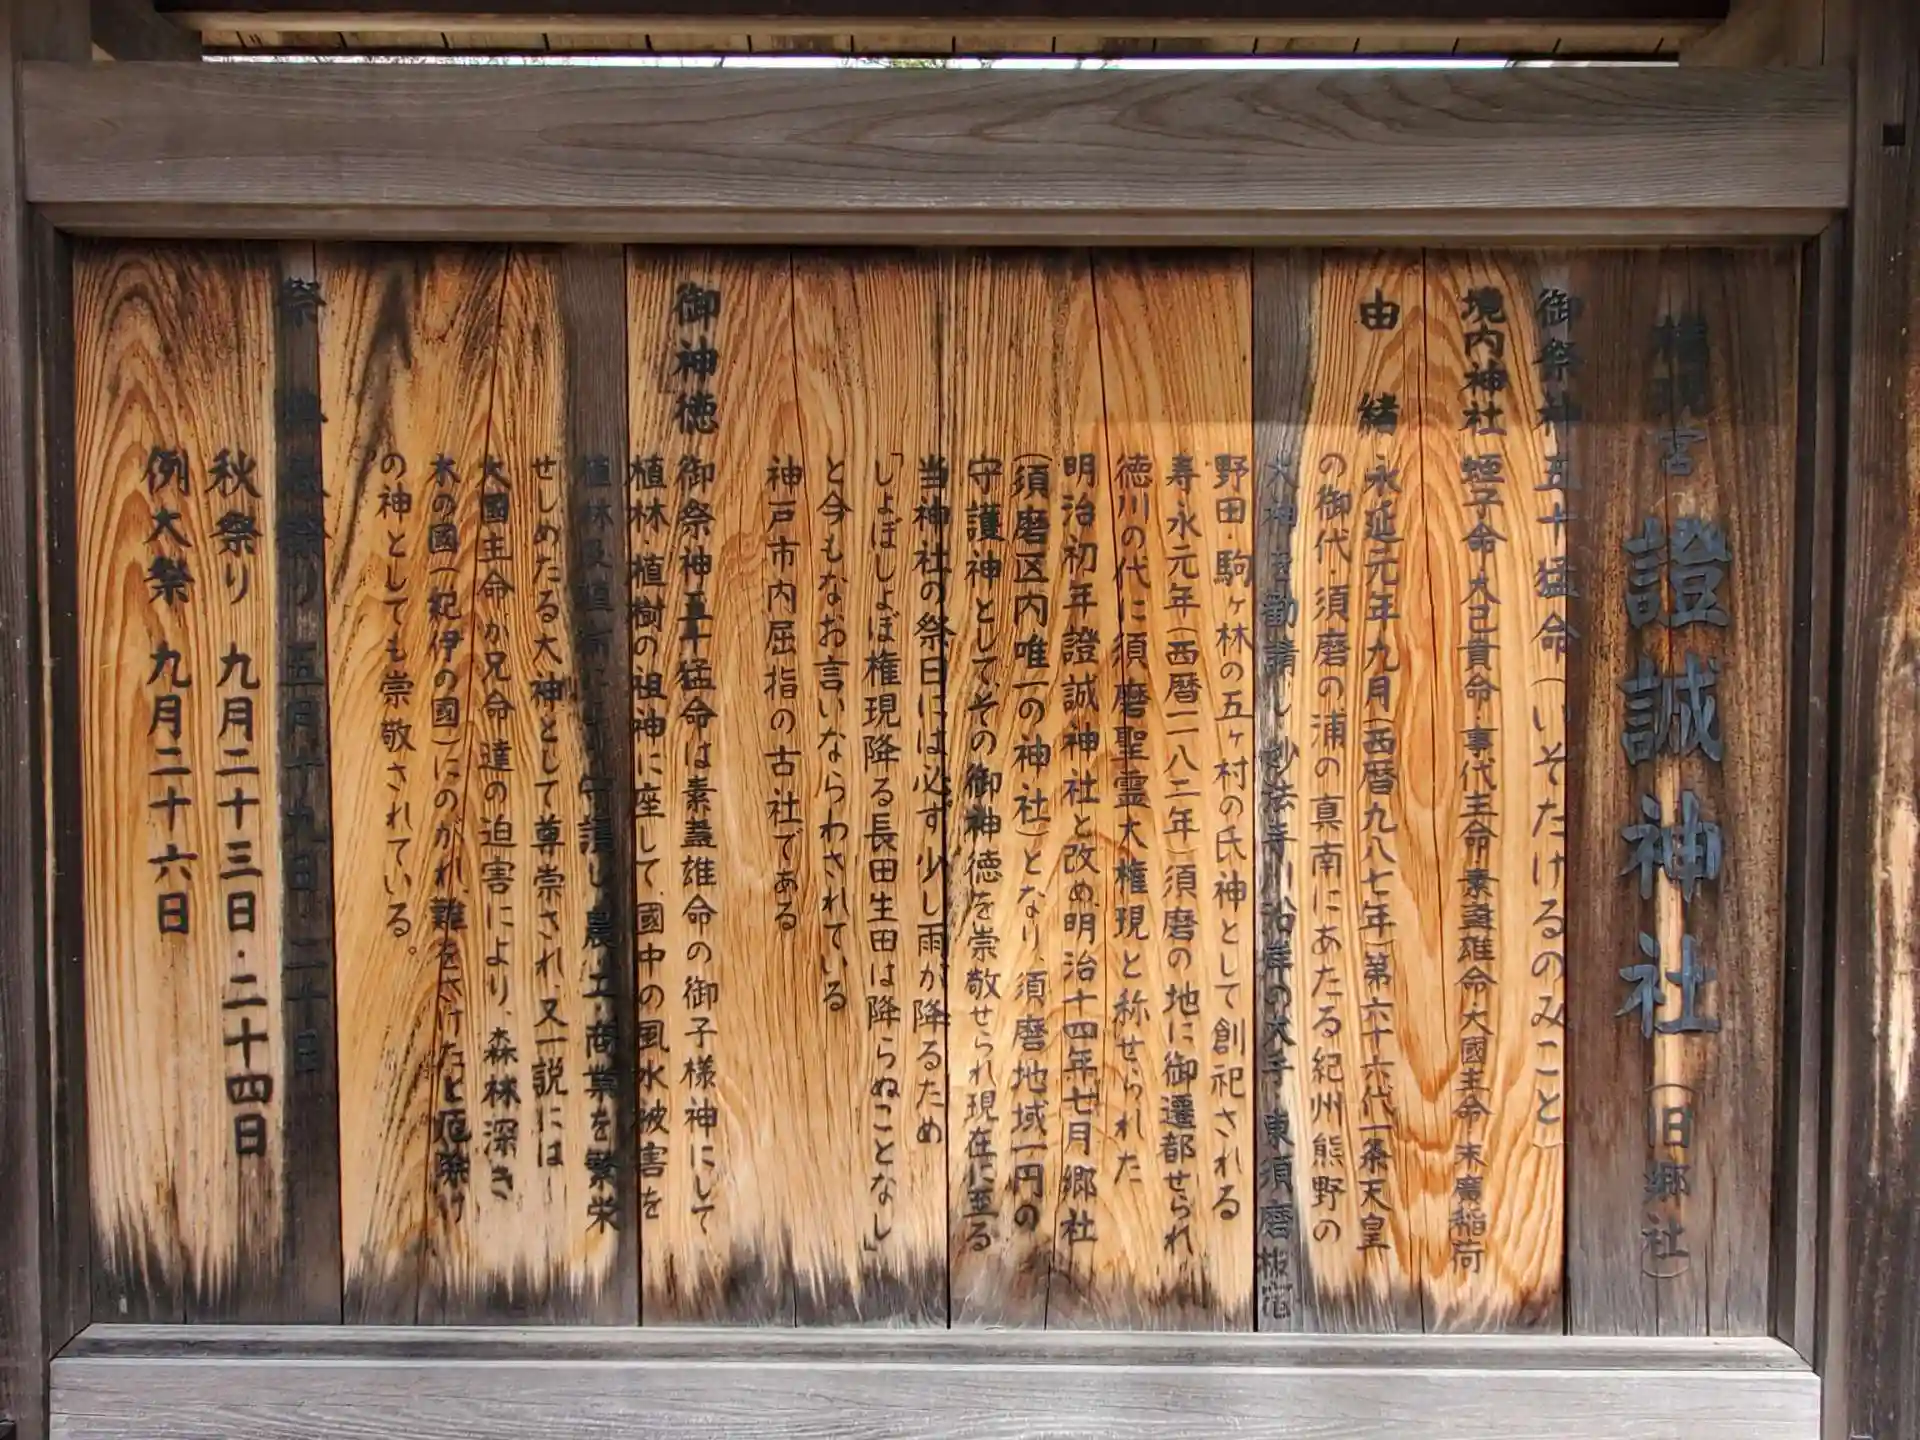 権現宮 證誠神社 (旧郷社)
御祭神 五十猛命(いそたけるのみこと)
境内神社 蛭子命・大己貴命・事代主命・素盞雄命・大國主命・末廣稲荷
由緒 永延元年九月(西暦九八七年)第六十六代一条天皇
の御代・須磨の浦の真南にあたる紀州熊野の
大神を勧請し妙法寺川沿岸の大手・東須磨・板宿
野田・駒ヶ林の五ヶ村の氏神として創祀される
寿永元年(西暦一一八二年)須磨の地に御遷都せられ
徳川の代に須磨聖霊大権現と称せられた
明治初年證誠神社と改め、明治十四年七月郷社
(須磨区内唯一の神社)となり、須磨地域一円の
守護神として、その御神徳を崇敬せられ現在に至る
当神社の祭日には必ず少し雨が降るため
「しょぼしょぼ権現降る長田生田は降らぬことなし」
と今もなお言いならわされている
神戸市内屈指の古社である
御神徳 御祭神五十猛命は素盞雄命の御子様神にして
植林・植樹の祖神に座して、國中の風水被害を
守護し農・工・商業を繁栄
せしめたる大神として尊崇され、又一説には
大國主命が兄命達の迫害により、森林深き
木の國(紀伊の國)にのがれ、難をさけたと厄除け
の神としても崇敬されている。
祭典 祭り 五月十九日・二十日
秋祭り 九月二十三日・二十四日
例大祭 九月二十六日